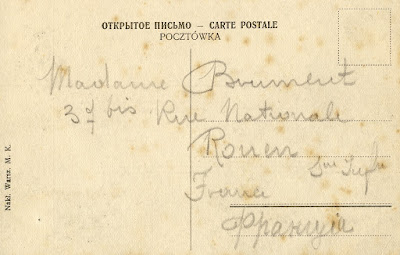 ОТКРЫТОЕ ПИСЬМО — CARTE POSTALE
POCZTÓWKA
Madame Brument
bis Rue Nationale
Rouen
Sne Infre
France
Франція
Nakł. Warsz. M. K.